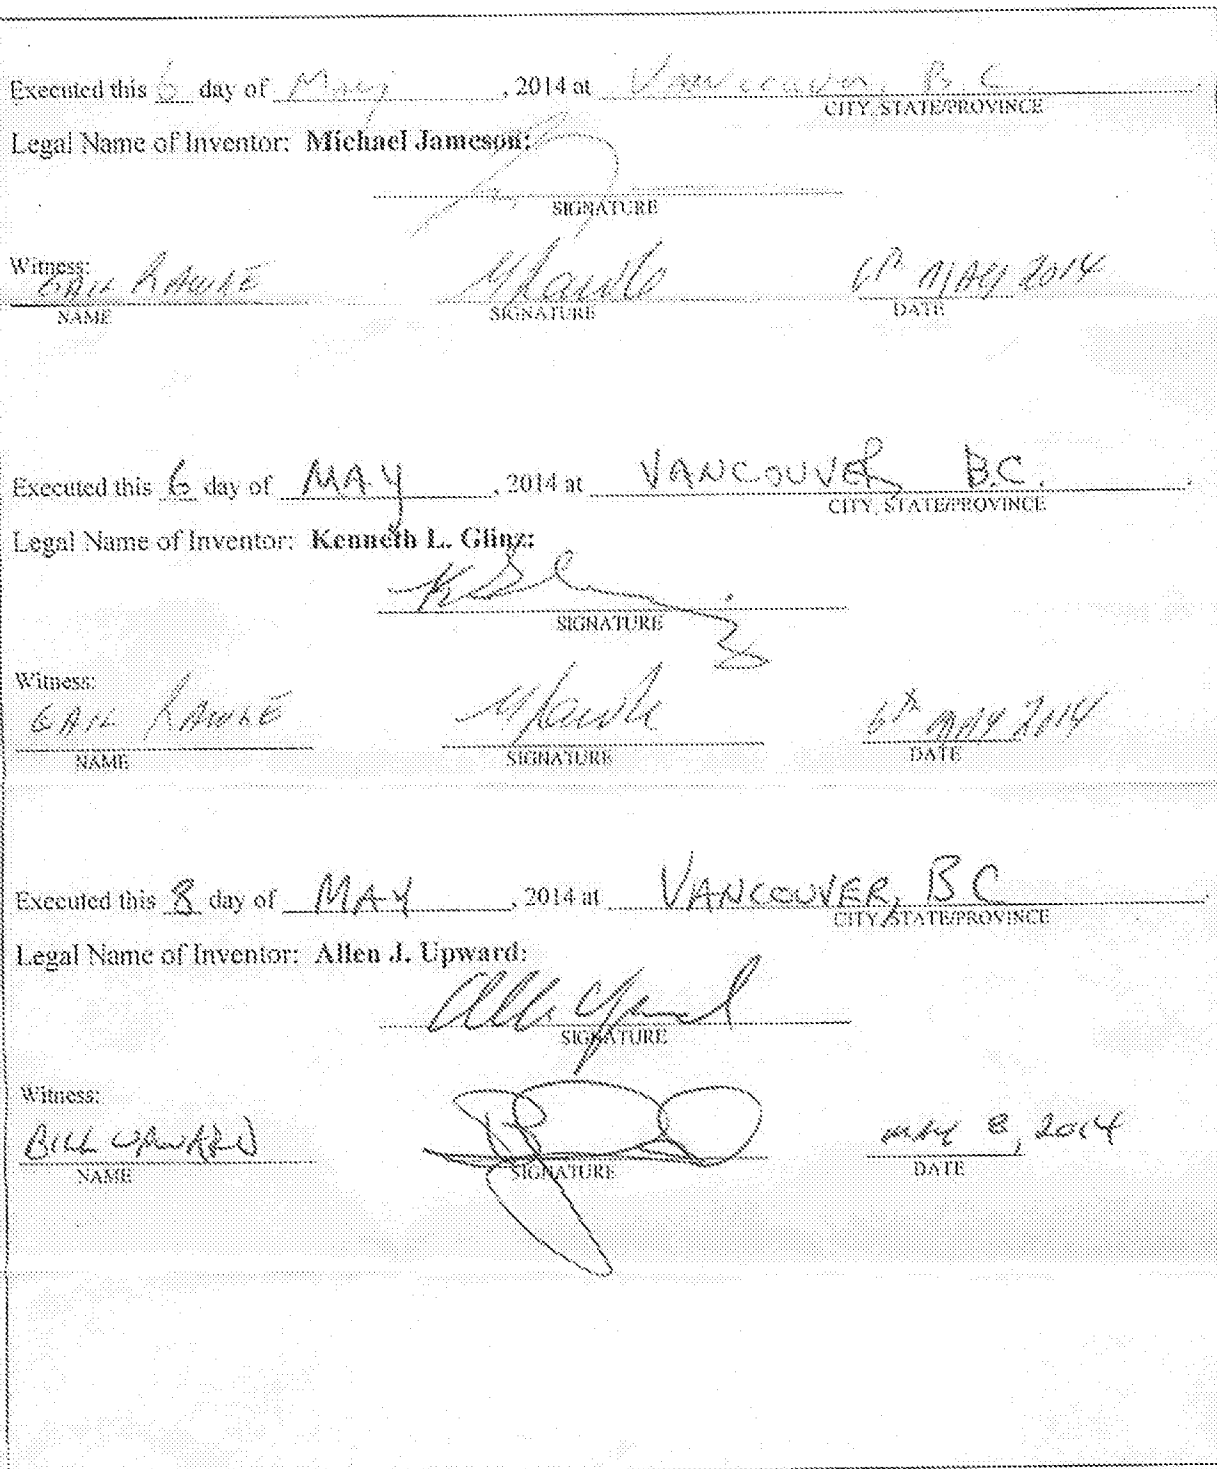 Executed this 6 day of May, 2014 at Vancouver, B.C.,
CITY, STATE/PROVINCE
Legal Name of Inventor: Michael Jameson:
SIGNATURE
Witness:
GAIL RAWKE 6th MAY 2014
NAME SIGNATURE DATE
Executed this 6 day of MAY, 2014 at VANCOUVER, B.C.,
CITY, STATE/PROVINCE
Legal Name of Inventor: Kenneth L. Glinz:
SIGNATURE
Witness:
GAIL RAWKE 6th MAY 2014
NAME SIGNATURE DATE
Executed this 8 day of MAY, 2014 at VANCOUVER, BC,
CITY, STATE/PROVINCE
Legal Name of Inventor: Allen J. Upward:
SIGNATURE
Witness:
BILL UPWARD MAY 8, 2014
NAME SIGNATURE DATE